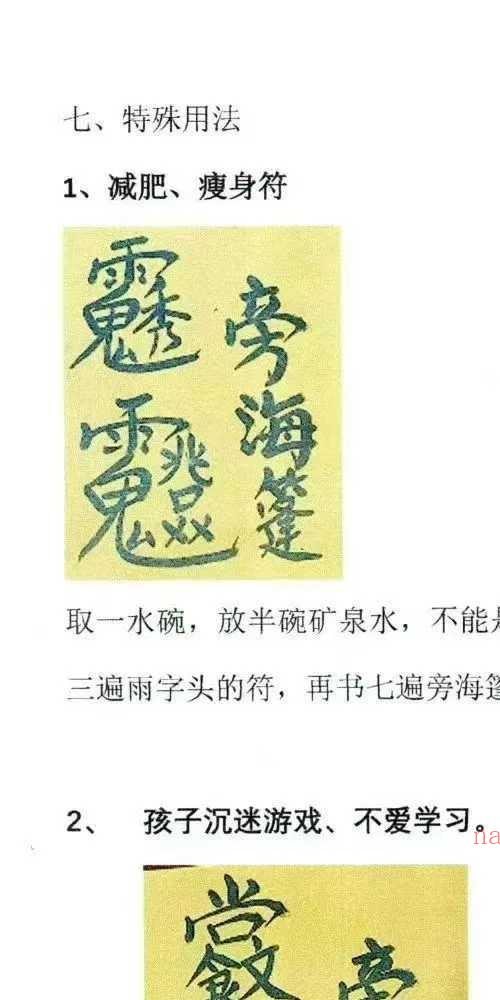 七、特殊用法
1、减肥、瘦身符
旁海篷
取一水碗，放半碗矿泉水，不能
三遍雨字头的符，再书七遍旁海篷
2、 孩子沉迷游戏、不爱学习。
na
旁